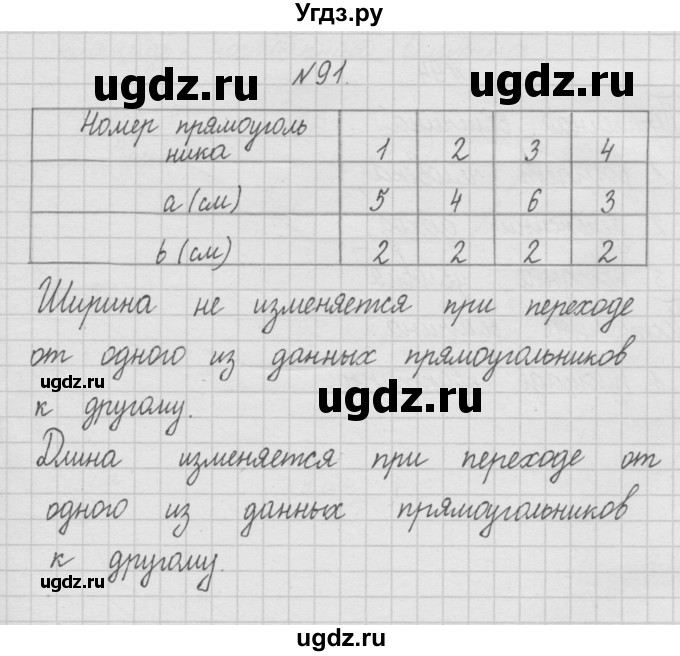 Угдз.ру
ugdz.ru ugdz.ru
№91.
Номер прямоуголь
ника 1 2 3 4
a (см) 5 4 6 3
b (см) 2 2 2 2
Ширина не изменяется при переходе
от одного из данных прямоугольников
ugdz.ru ugdz.ru
к другому.
Длина изменяется при переходе от
одного из данных прямоугольников
к другому.
ugdz.ru ugdz.ru
ugdz.ru